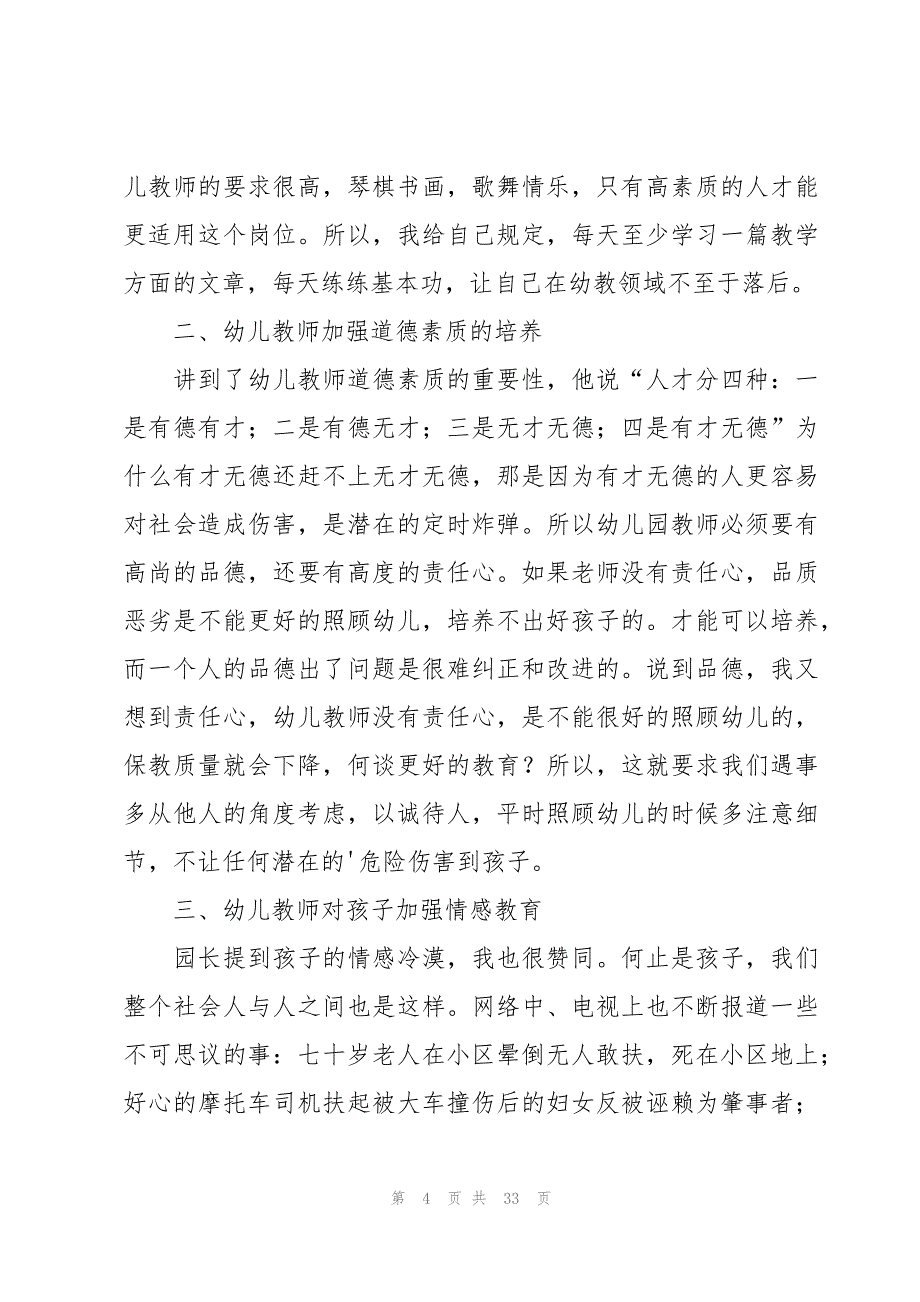 儿教师的要求很高，琴棋书画，歌舞情乐，只有高素质的人才能
更适用这个岗位。所以，我给自己规定，每天至少学习一篇教学
方面的文章，每天练练基本功，让自己在幼教领域不至于落后。
二、幼儿教师加强道德素质的培养
讲到了幼儿教师道德素质的重要性，他说“人才分四种：一
是有德有才；二是有德无才；三是无才无德；四是有才无德”为
什么有才无德还赶不上无才无德，那是因为有才无德的人更容易
对社会造成伤害，是潜在的定时炸弹。所以幼儿园教师必须要有
高尚的品德，还要有高度的责任心。如果老师没有责任心，品质
恶劣是不能更好的照顾幼儿，培养不出好孩子的。才能可以培养，
而一个人的品德出了问题是很难纠正和改进的。说到品德，我又
想到责任心，幼儿教师没有责任心，是不能很好的照顾幼儿的，
保教质量就会下降，何谈更好的教育？所以，这就要求我们遇事
多从他人的角度考虑，以诚待人，平时照顾幼儿的时候多注意细
节，不让任何潜在的'危险伤害到孩子。
三、幼儿教师对孩子加强情感教育
园长提到孩子的情感冷漠，我也很赞同。何止是孩子，我们
整个社会人与人之间也是这样。网络中、电视上也不断报道一些
不可思议的事：七十岁老人在小区晕倒无人敢扶，死在小区地上；
好心的摩托车司机扶起被大车撞伤后的妇女反被诬赖为肇事者；
第 4 页 共 33 页